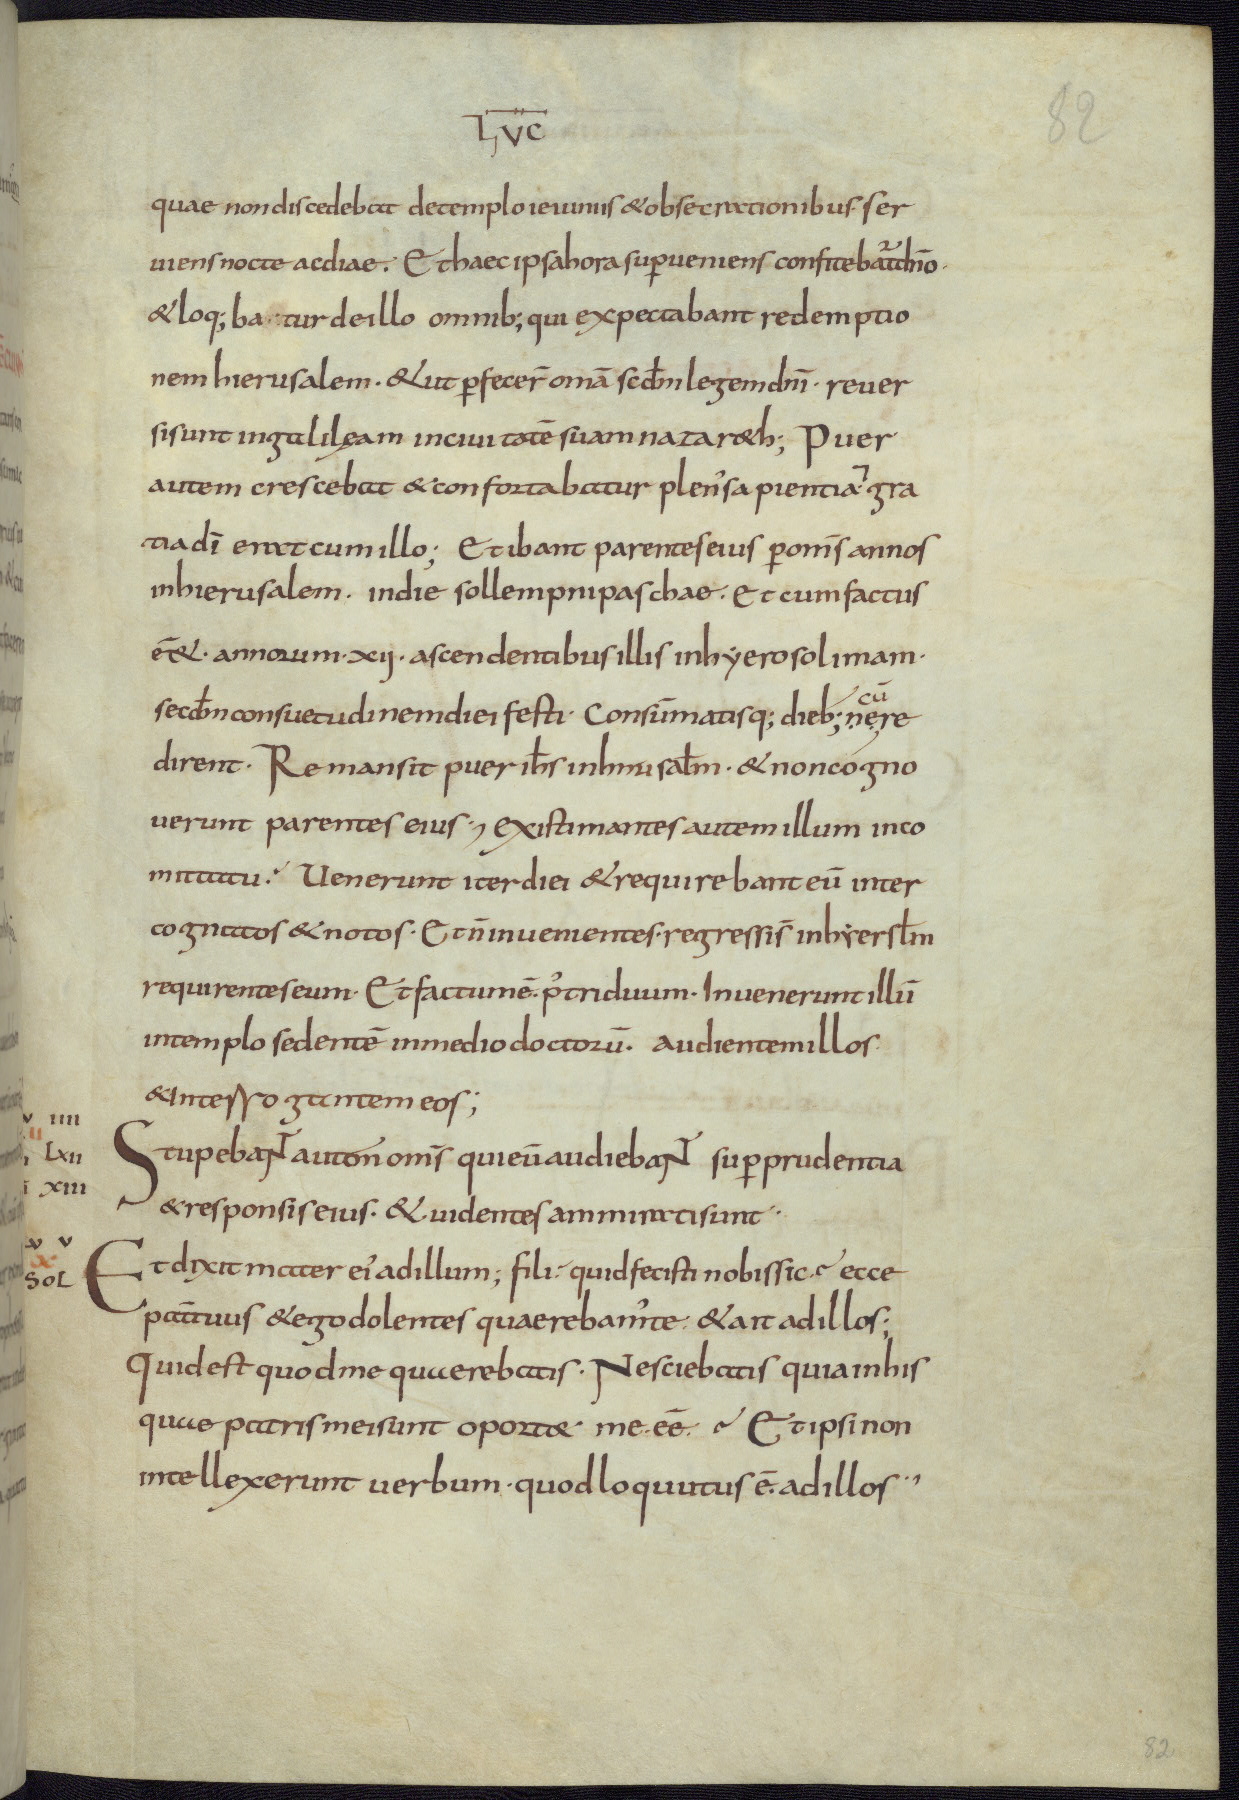 LUC
82
quae non discedebat detemplo ieiuniis & obsecrationibus ser
uiens nocte acdiae. Et haec ipsa hora sup̄ueniens confitebat̃ dn̄o·
& loq;ba tur deillo omnib; qui expectabant redemptio
nem hierusalem· & ut p̄fecer̄ om̄a scd̄m legem dn̄i· reuer
si sunt in galileam in ciuitatē suam nazar&h; Puer
autem crescebat & confortabatur plen᾽ sapientia ⁊ gra
tia dī erat cum illo; Et ibant parentes eius p̄ om̄s annos
in hierusalem· in die sollempni paschae· Et cum factus
ēē&· annorum· xii· ascendentibus illis in hyerosolimam·
secd̄m consuetudinem diei festi· Consūmatisq; dieb; cū nere
dirent· Remansit puer ih̄s in hierusal̄m· & non cogno
uerunt parentes eius·, existimantes autem illum in co
mitatu· Uenerunt iter diei & requirebant eū inter
cognatos & notos· Et n̄ inuenientes· regressi s̄ in hyersl̄m
requirentes eum· Et factum ē· p᾽ triduum· Inuenerunt illū
in templo sedentē in medio doctorū· audientem illos
& interrogantem eos;
v IIII
II
LXII
XIII
Stupebant autem om̄s qui eū audiebant sup̄ prudentia
& responsis eius· & uidentes ammirati sunt·
x v
x
SOL
Et dixit mater ei᾽ ad illum; fili· quid fecisti nobis sic· ecce
pat̄ tuus & ego dolentes quaerebam᾽ te· & ait ad illos;
Quid est quod me quaerebatis· Nesciebatis quia in his
quae patris mei sunt oport& me· ēē· Et ipsi non
intellexerunt uerbum· quod loquutus ē· ad illos·,
82